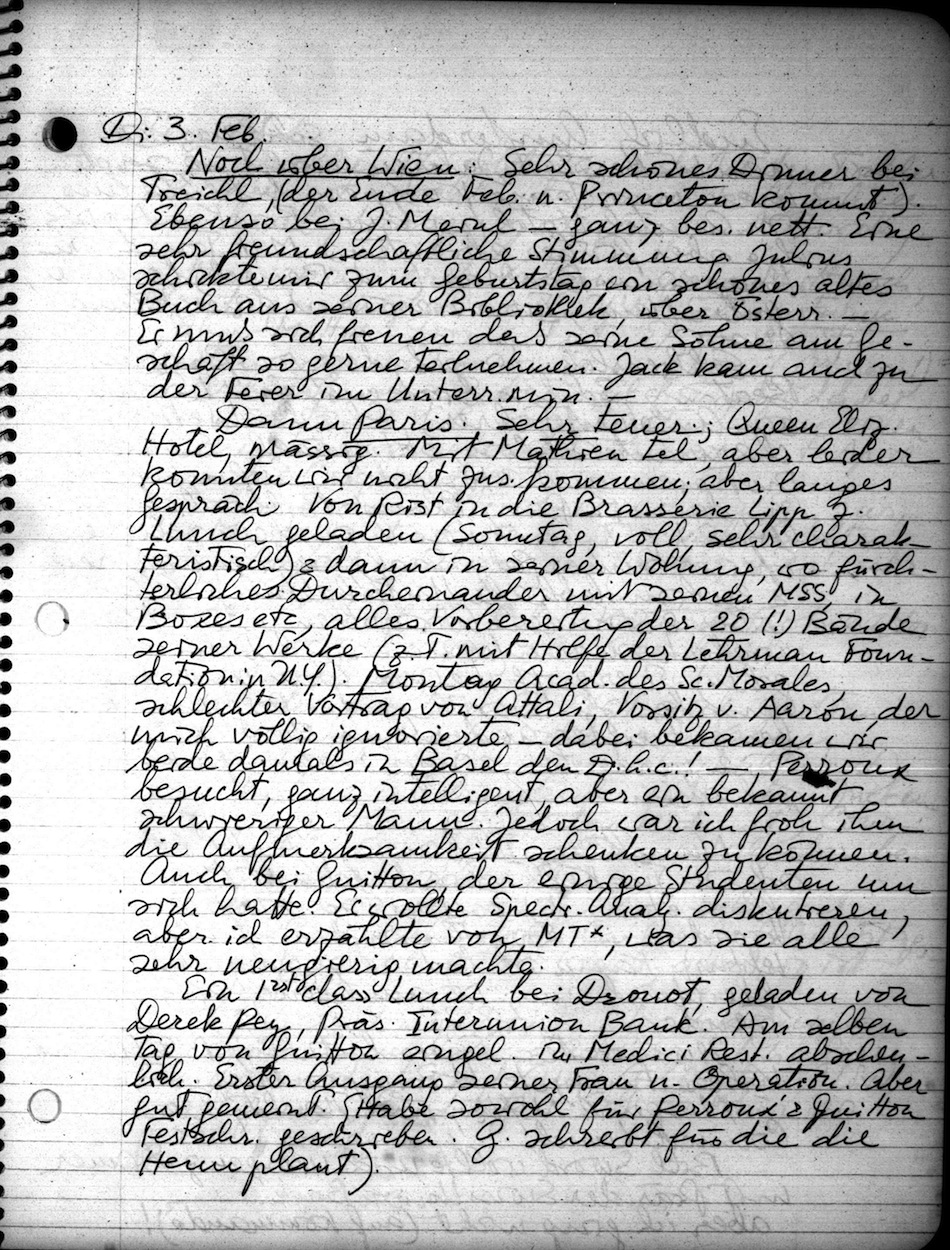 Di. 3. Feb.
Noch über Wien: Sehr schönes Dinner bei
Treichl, (der Ende Feb. n. Princeton kommt).
Ebenso bei J. Meinl – ganz bes. nett. Eine
sehr freundschaftliche Stimmung. Julius
schickte mir zum Geburtstag ein schönes altes
Buch aus seiner Bibliothek, über Österr. —
Er muss sich freuen dass seine Söhne am Ge-
schäft so gerne teilnehmen. Jack kam auch zu
der Feier im Unterr. min. —
Dann Paris. Sehr teuer; Queen Eliz.
Hotel, mässig. Mit Mathieu tel., aber leider
konnten wir nicht zus. kommen; aber langes
Gespräch. Von Rist in die Brasserie Lipp z.
Lunch geladen (Sonntag, voll, sehr charak-
teristisch) & dann in seiner Wohnung, wo fürch-
terliches Durcheinander mit seinen MSS, in
Boxes etc, alles Vorbereitung der 20 (!) Bände
seiner Werke (z.T. mit Hilfe der Lehrman Foun-
dation in N.Y.). Montag Acad. des Sc. Morales,
schlechter Vortrag von Attali, Vorsitz v. Aaron, der
mich völlig ignorierte – dabei bekamen wir
beide damals in Basel den D.h.c.! — Perroux
besucht, ganz intelligent, aber ein bekannt
schwieriger Mann. Jedoch war ich froh ihm
die Aufmerksamkeit schenken zu können.
Auch bei Guitton, der einige Studenten um
sich hatte. Er wollte Spectr. Anal. diskutieren,
aber ich erzählte von MT*, was sie alle
sehr neugierig machte.
Ein 1st class Lunch bei Drouot, geladen von
Derek Pey, Präs. Interunion Bank. Am selben
Tag von Guitton eingel. in Medici Rest. abscheu-
lich. Erster Ausgang seiner Frau n. Operation. Aber
gut gemeint. (Habe sowohl für Perroux & Guitton
Festschr. geschrieben. G. schreibt für die die
Henn plant).